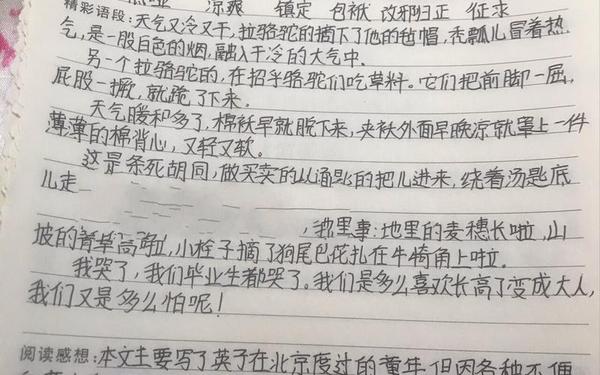 凉爽 镇定 包袱 改邪归正 征求
精彩语段:天气又冷又干,拉骆驼的摘下了他的毡帽,秃瓢儿冒着热
气,是一股白色的烟,融入干冷的大气中.
另一个拉骆驼的,在招乎骆驼们吃草料。它们把前脚一屈,
屁股一撅,就跪了下来.
天气暖和多了,棉袄早就脱下来,夹袄外面早晚凉就罩上一件
薄薄的棉背心,又轻又软。
这是条死胡同,做买卖的从匙的把儿进来,绕着汤匙底
儿走
里事:地里的麦穗长啦,山
坡的青草高啦,小栓子摘了狗尾巴花扎在牛犄角上啦.
我哭了,我们毕业生都哭了。我们是多么喜欢长高了变成大人,
我们又是多么怕呢!
阅读感想:本文主要写了英子在北京度过的童年,但因各种不便